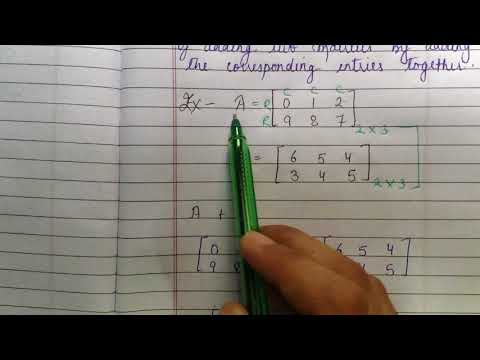 of adding two matrices by adding
the corresponding entries together.
Ex – A = R [ 0 1 2
R 9 8 7 ] 2 x 3
C C C
= [ 6 5 4
3 4 5 ] 2 x 3
A +
[ 0 6 5 4
9 8 4 5 ]